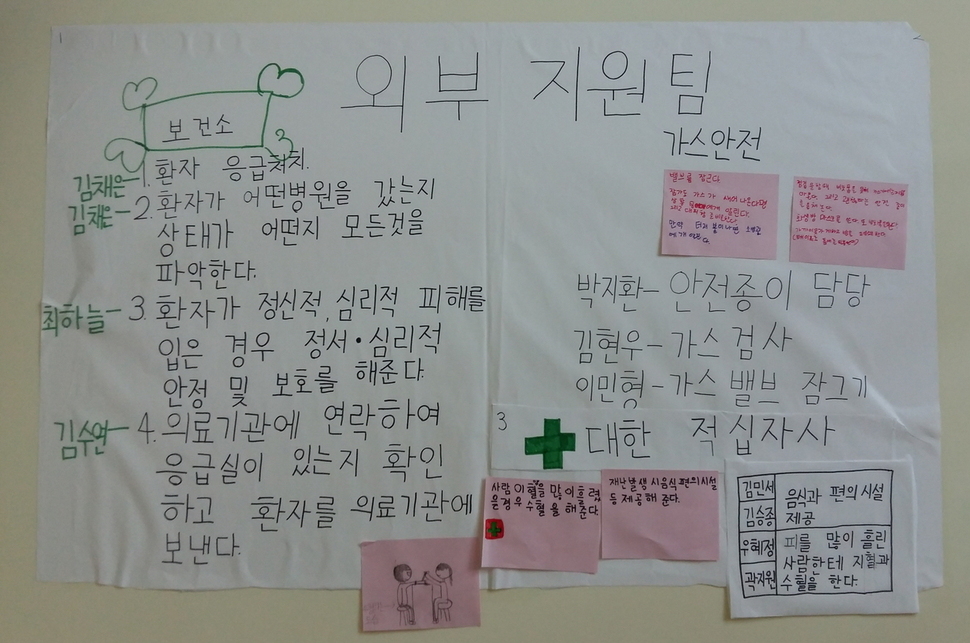 1
2
외부 지원팀
보건소
3
김채은-1. 환자 응급쳐치.
김채은-2. 환자가 어떤병원을 갔는지
상태가 어떤지 모든것을
파악한다.
최하늘-3. 환자가 정신적, 심리적 피해를
입은 경우 정서·심리적
안정 및 보호를 해준다.
김수연-4. 의료기관에 연락하여
응급실이 있는지 확인
하고 환자를 의료기관에
보낸다.
가스안전
밸브를 잠근다
잠가도 가스가 새어 나온다면
만약
박지환-안전종이 담당
김현우-가스검사
이민형-가스 밸브 잠그기
3
대한 적십자사
사람이 혈을 많이흘렸
을경우 수혈을 해준다.
재난발생 시음식편의시설
등제공해 준다.
김민세
김승종
음식과 편의시설
제공
우혜정
곽지원
피를 많이 흘린
사람한테 지혈과
수혈을 한다.